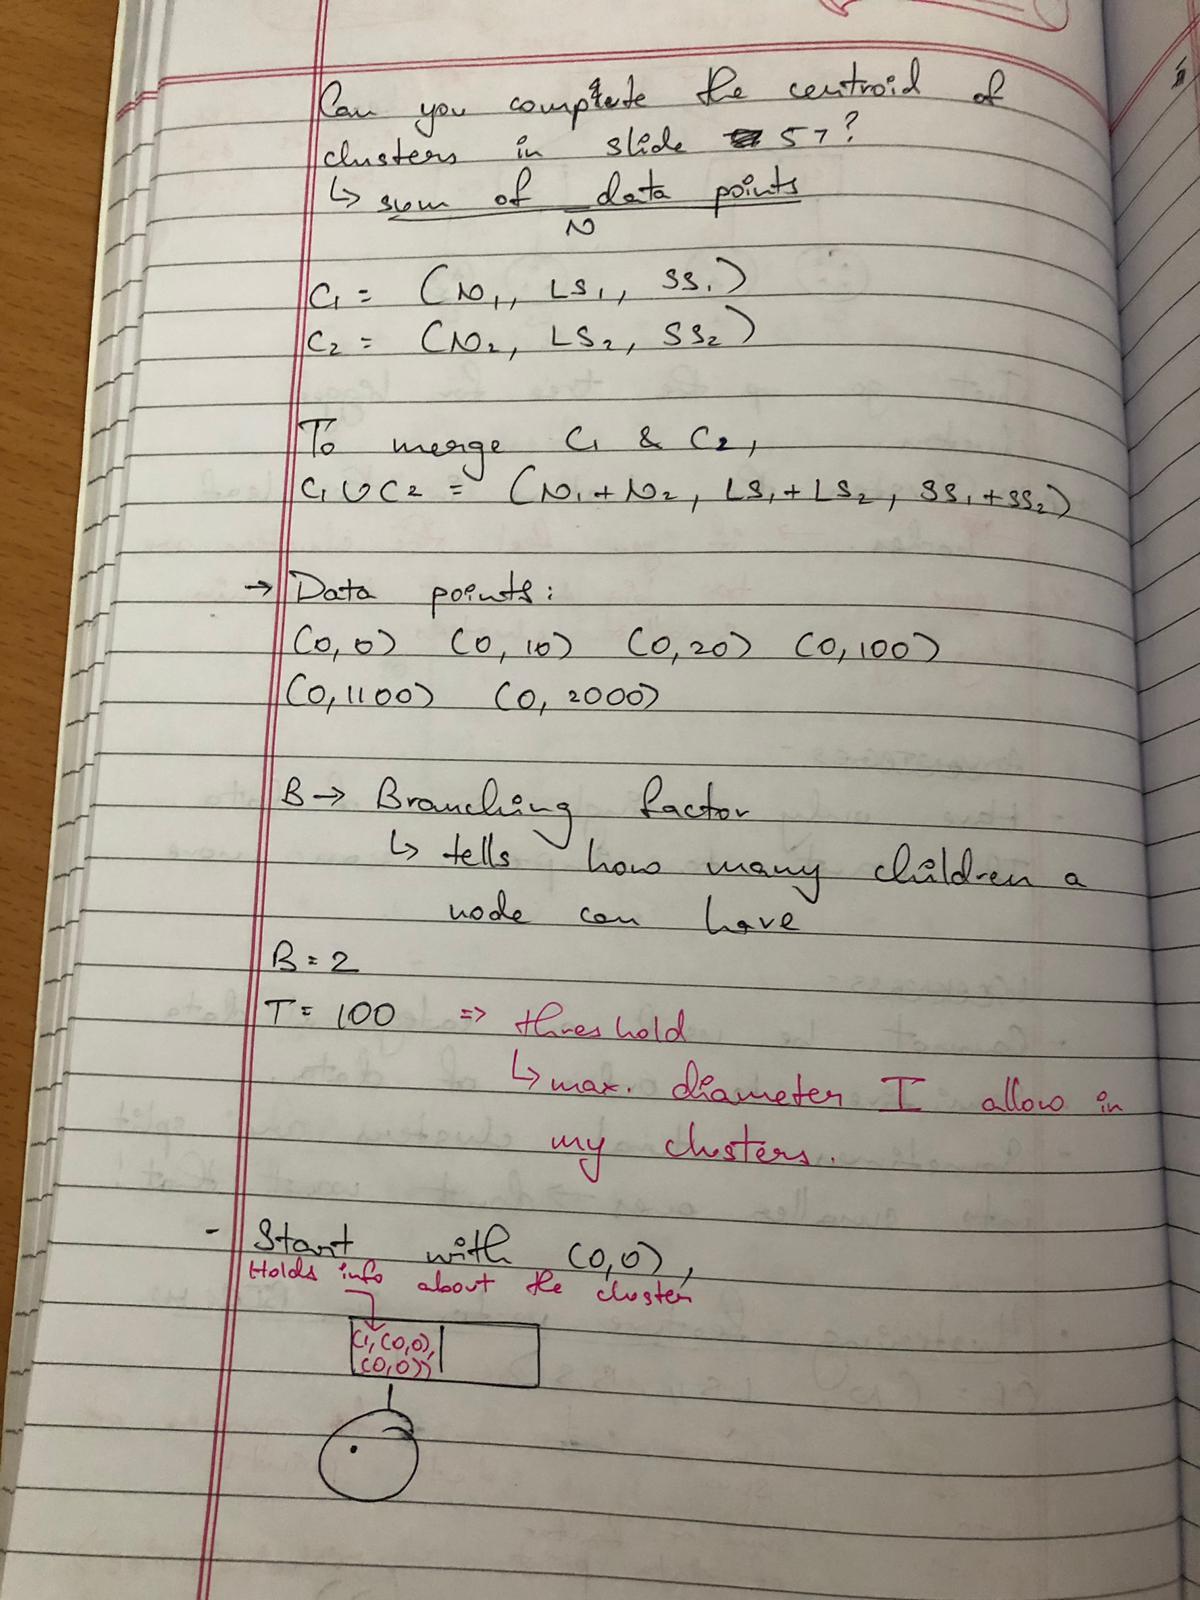 Can you compute the centroid of
clusters in slide 57?
↳ sum of data points
N
C1 = (N1, LS1, SS1)
C2 = (N2, LS2, SS2)
To merge C1 & C2,
C1 ∪ C2 = (N1 + N2, LS1 + LS2, SS1 + SS2)
→ Data points:
(0,0) (0,10) (0,20) (0,100)
(0,1100) (0,2000)
B → Branching factor
↳ tells how many children a
node can have
B = 2
T = 100 => threshold
↳ max. diameter I allow in
my clusters.
- Start with (0,0),
Holds info about the cluster
(1,(0,0),
(0,0))